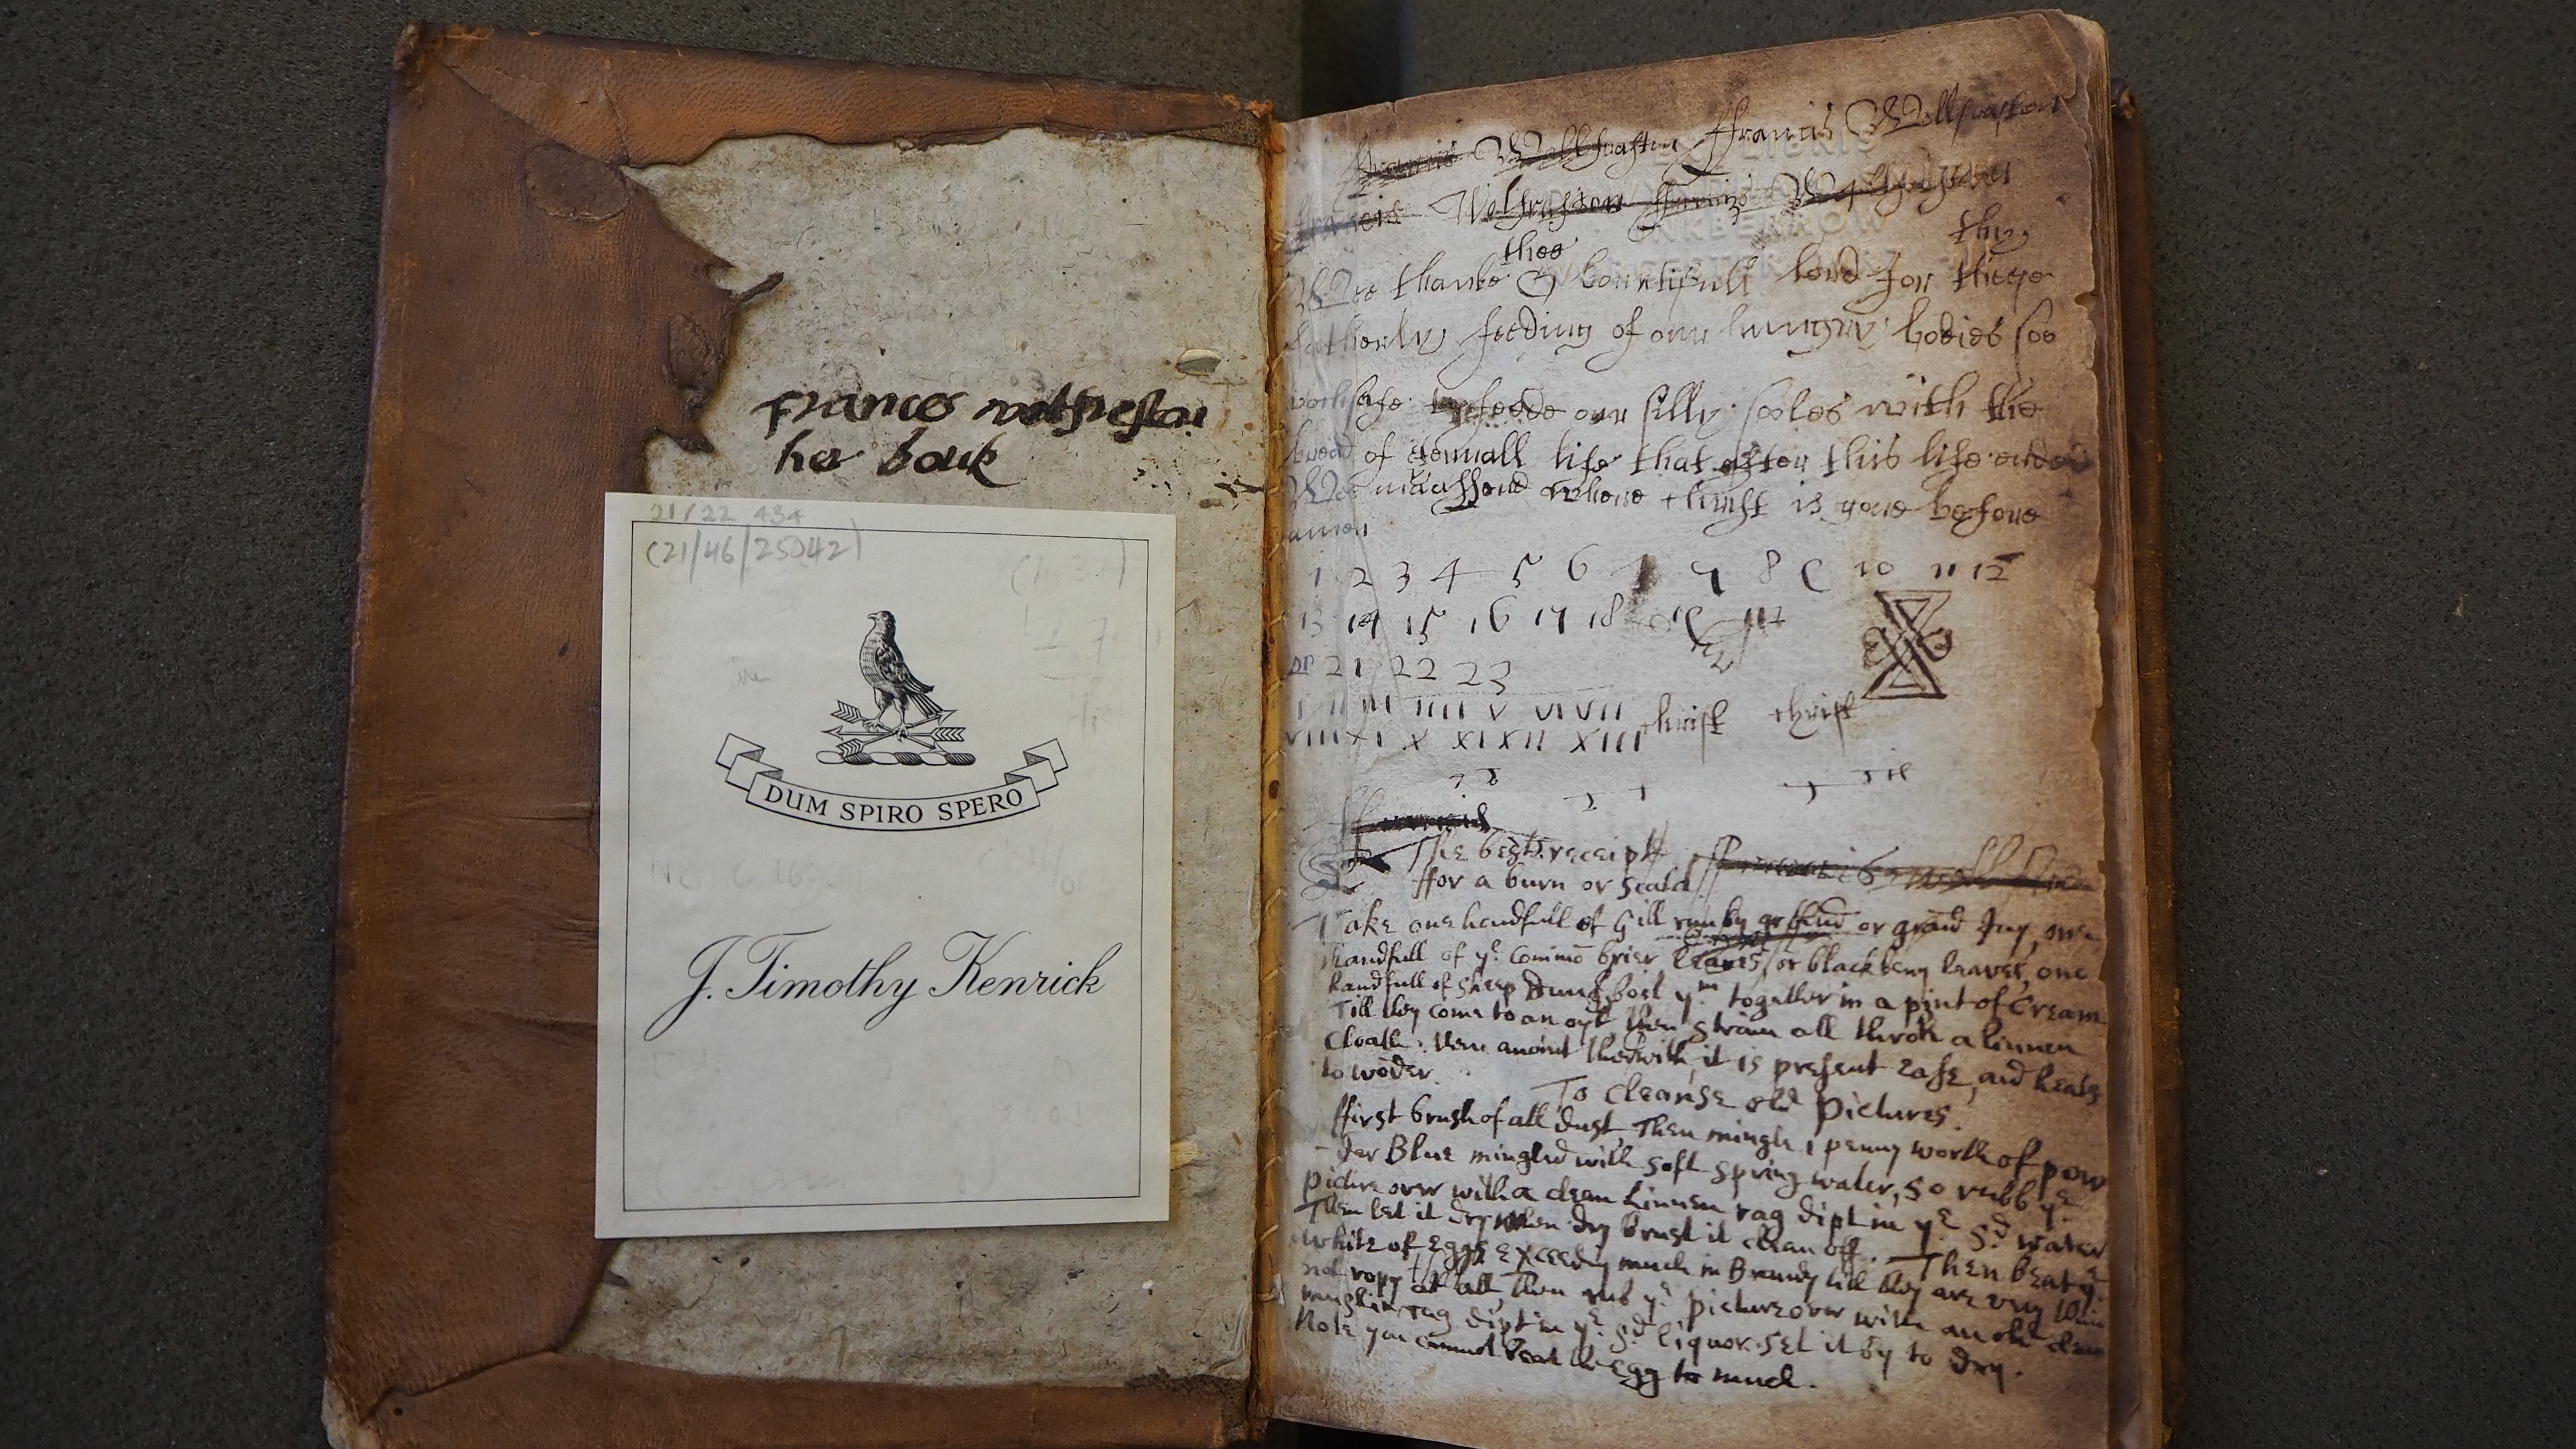 Frances wolfreston
her bouk
21/22 434
(21/46/25042)
DUM SPIRO SPERO
J. Timothy Kenrick
ffrancis Wollfraston ffrancis Wollfraston
francis Wolfraston
thee thy
Wee thanke O bountifull lord for these
fatherly feeding of our hungry bodies soo
vochsafe to feede our silly sooles with the
bread of eternall life that after this life ended
Wee may assend where christ is gone before
amen
1 2 3 4 5 6 7 8 9 10 11 12
13 14 15 16 17 18 19
21 22 23
I II III IIII V VI VII christ christ
VIII XI X XI XII XIII
The best receipt
ffor a burn or scald
Take one handfull of Gill or ground Ivy, one
handfull of yᵉ commō brier leaves, or blackbery leaves, one
handfull of sheep dung, boil yᵐ together in a pint of Cream
Till they come to an oyl, then strain all throh a linnen
Cloath: then anoint therwith, it is present ease, and heals
to wōder.
To cleanse old Pictures.
ffirst brush of all dust Then mingle 1 penny worth of pow
-der Blue mingled with soft spring water, so rubb yᵉ
picture over with a clean Linnen rag dipt in yᵉ sᵈ water
Then let it dry, when dry brust it clean off. Then beat yᵉ
white of Eggs exceeding much in Brandy till they are very thin
not ropy at all, then rub yᵉ picture over with an old clean
muslin rag dipt in yᵉ sᵈ liquor. set it by to dry.
Note you cannot beat the egg to much.